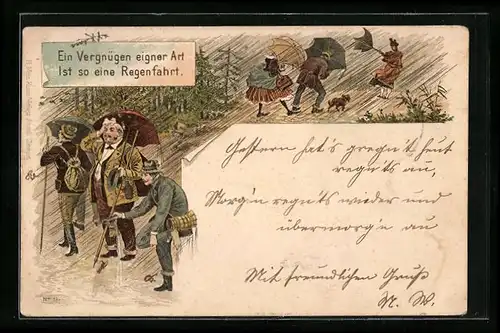 Ein Vergnügen eigner Art
Ist so eine Regenfahrt.
Gestern hat's gregn't heut
regn'ts au,
Morg'n regn'ts wieder und
übermorg'n au
Mit freundlichen Gruß
N. W.